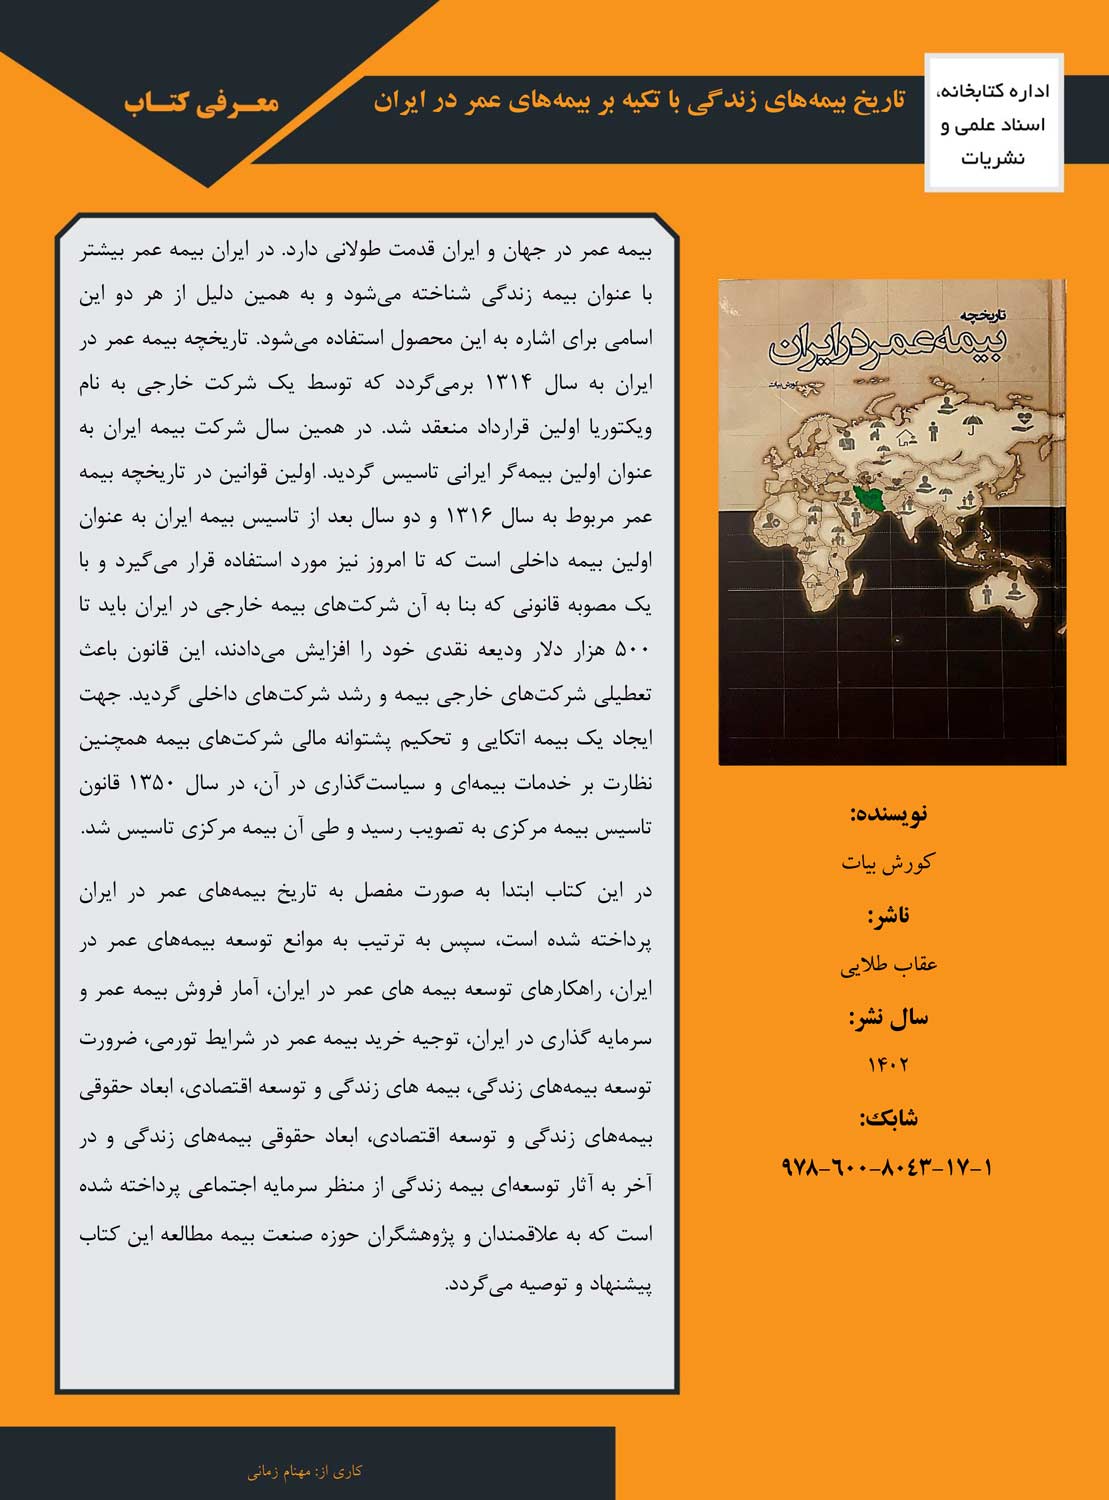 اداره کتابخانه،
اسناد علمی و
نشریات
تاریخ بیمه‌های زندگی با تکیه بر بیمه‌های عمر در ایران
معــرفی کتــاب
بیمه عمر در جهان و ایران قدمت طولانی دارد. در ایران بیمه عمر بیشتر
با عنوان بیمه زندگی شناخته می‌شود و به همین دلیل از هر دو این
اسامی برای اشاره به این محصول استفاده می‌شود. تاریخچه بیمه عمر در
ایران به سال ۱۳۱۴ برمی‌گردد که توسط یک شرکت خارجی به نام
ویکتوریا اولین قرارداد منعقد شد. در همین سال شرکت بیمه ایران به
عنوان اولین بیمه‌گر ایرانی تاسیس گردید. اولین قوانین در تاریخچه بیمه
عمر مربوط به سال ۱۳۱۶ و دو سال بعد از تاسیس بیمه ایران به عنوان
اولین بیمه داخلی است که تا امروز نیز مورد استفاده قرار می‌گیرد و با
یک مصوبه قانونی که بنا به آن شرکت‌های بیمه خارجی در ایران باید تا
۵۰۰ هزار دلار ودیعه نقدی خود را افزایش می‌دادند، این قانون باعث
تعطیلی شرکت‌های خارجی بیمه و رشد شرکت‌های داخلی گردید. جهت
ایجاد یک بیمه اتکایی و تحکیم پشتوانه مالی شرکت‌های بیمه همچنین
نظارت بر خدمات بیمه‌ای و سیاست‌گذاری در آن، در سال ۱۳۵۰ قانون
تاسیس بیمه مرکزی به تصویب رسید و طی آن بیمه مرکزی تاسیس شد.
در این کتاب ابتدا به صورت مفصل به تاریخ بیمه‌های عمر در ایران
پرداخته شده است، سپس به ترتیب به موانع توسعه بیمه‌های عمر در
ایران، راهکارهای توسعه بیمه های عمر در ایران، آمار فروش بیمه عمر و
سرمایه گذاری در ایران، توجیه خرید بیمه عمر در شرایط تورمی، ضرورت
توسعه بیمه‌های زندگی، بیمه های زندگی و توسعه اقتصادی، ابعاد حقوقی
بیمه‌های زندگی و توسعه اقتصادی، ابعاد حقوقی بیمه‌های زندگی و در
آخر به آثار توسعه‌ای بیمه زندگی از منظر سرمایه اجتماعی پرداخته شده
است که به علاقمندان و پژوهشگران حوزه صنعت بیمه مطالعه این کتاب
پیشنهاد و توصیه می‌گردد.
تاریخچه
بیمه عمر در ایران
کورش بیات
نویسنده:
کورش بیات
ناشر:
عقاب طلایی
سال نشر:
۱۴۰۲
شابک:
۹۷۸-۶۰۰-۸۰۴۳-۱۷-۱
کاری از: مهنام زمانی